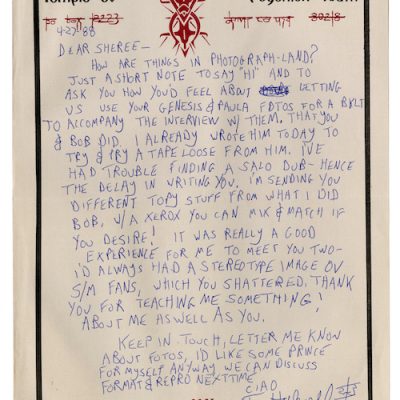 Temple ov
po box 2223
4-27/88
DEAR SHEREE—
HOW ARE THINGS IN PHOTOGRAPH-LAND?
JUST A SHORT NOTE TO SAY "HI" AND TO
ASK YOU HOW YOU'D FEEL ABOUT LETTING
US USE YOUR GENESIS & PAULA FOTOS FOR A BKLT
TO ACCOMPANY THE INTERVIEW W/ THEM, THAT YOU
& BOB DID. I ALREADY WROTE HIM TODAY TO
TRY & PRY A TAPE LOOSE FROM HIM. I'VE
HAD TROUBLE FINDING A SALO DUB- HENCE
THE DELAY IN WRITING YOU. I'M SENDING YOU
DIFFERENT TOPY STUFF FROM WHAT I DID
BOB, W/A XEROX YOU CAN MIX & MATCH IF
YOU DESIRE! IT WAS REALLY A GOOD
EXPERIENCE FOR ME TO MEET YOU TWO-
I'D ALWAYS HAD A STEREOTYPE IMAGE OV
S/M FANS, WHICH YOU SHATTERED. THANK
YOU FOR TEACHING ME SOMETHING!
ABOUT ME AS WELL AS YOU.
KEEP IN TOUCH, LETTER ME KNOW
ABOUT FOTOS, I'D LIKE SOME PRINCE
FOR MYSELF ANYWAY. WE CAN DISCUSS
FORMAT & REPRO NEXT TIME
CIAO